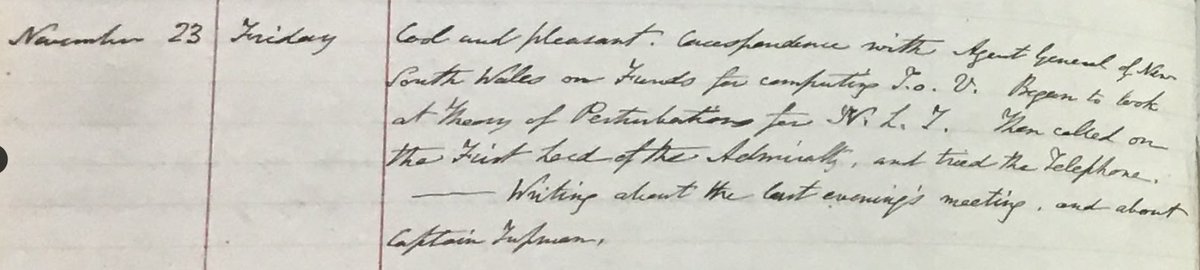 November 23 Friday Cool and pleasant. Correspondence with Agent General of New
South Wales on Funds for computing T. o. V. Began to look
at Theory of Perturbations for N. L. T. Then called on
the First Lord of the Admiralty, and tried the Telephone.
—— Writing about the last evening's meeting, and about
Captain Tupman.